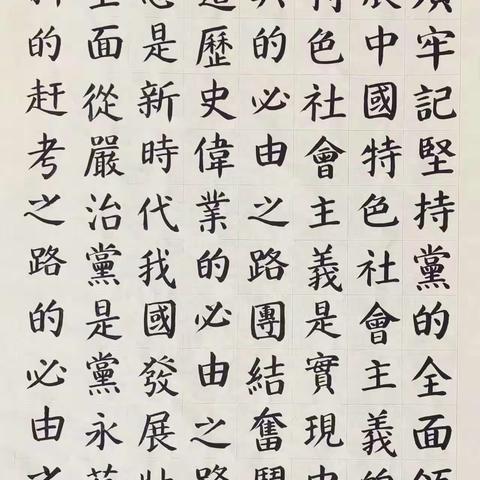 須牢記堅持黨的全面領
展中國特色社會主義的
特色社會主義是實現中
的必由之路團結奮鬥
造歷史偉業的必由之路
念是新時代我國發展壯
全面從嚴治黨是黨永葆
的赶考之路的必由之